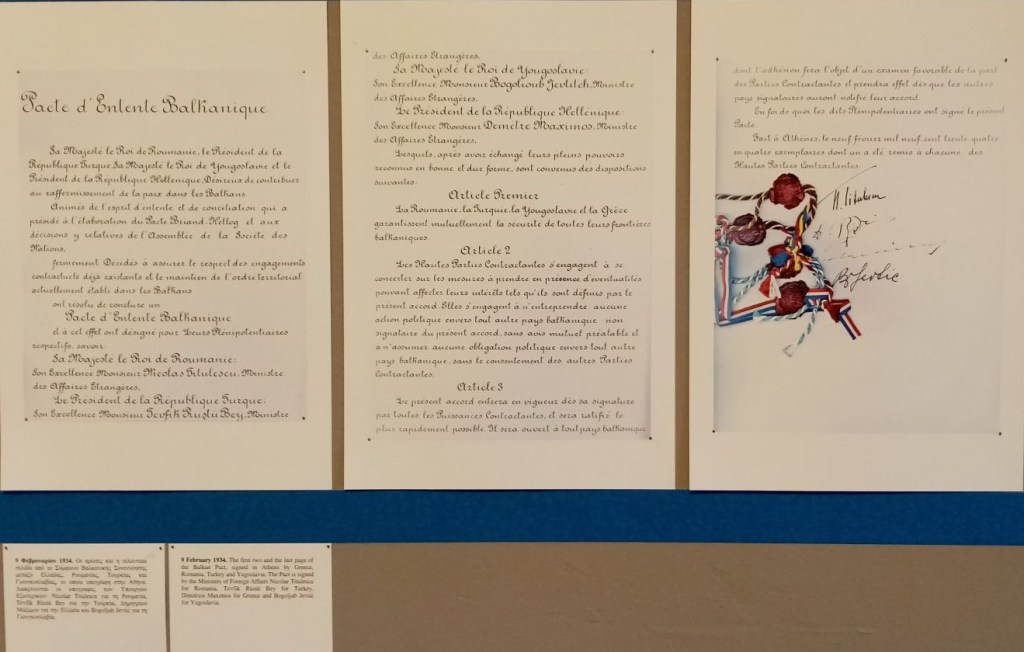 Pacte d'Entente Balkanique
Sa Majesté le Roi de Roumanie, le Président de la
République Turque, Sa Majesté le Roi de Yougoslavie et le
Président de la République Hellénique, Désireux de contribuer
au raffermissement de la paix dans les Balkans
Animés de l'esprit d'entente et de conciliation qui a
présidé à l'élaboration du Pacte Briand-Kellog et aux
décisions y relatives de l'Assemblée de la Société des
Nations,
fermement Décidés à assurer le respect des engagements
contractuels déjà existants et le maintien de l'ordre territorial
actuellement établi dans les Balkans
ont résolu de conclure un
Pacte d'Entente Balkanique
et à cet effet ont désigné pour Leurs Plénipotentiaires
respectifs, savoir:
Sa Majesté le Roi de Roumanie:
Son Excellence Monsieur Nicolas Titulescu, Ministre
des Affaires Etrangères.
Le Président de la République Turque:
Son Excellence Monsieur Tevfik Ruştu Bey, Ministre
des Affaires Etrangères.
Sa Majesté le Roi de Yougoslavie:
Son Excellence Monsieur Bogolioub Jevtitch, Ministre
des Affaires Etrangères.
Le Président de la République Hellénique:
Son Excellence Monsieur Demètre Maximos, Ministre
des Affaires Etrangères.
Lesquels, après avoir échangé leurs pleins pouvoirs
reconnus en bonne et due forme, sont convenus des dispositions
suivantes:
Article Premier
La Roumanie, la Turquie, la Yougoslavie et la Grèce
garantissent mutuellement la sécurité de toutes leurs frontières
balkaniques.
Article 2
Les Hautes Parties Contractantes s'engagent à se
concerter sur les mesures à prendre en présence d'éventualités
pouvant affecter leurs intérêts tels qu'ils sont définis par le
présent accord. Elles s'engagent à n'entreprendre aucune
action politique envers tout autre pays balkanique non
signataire du présent accord, sans avis mutuel préalable et
à n'assumer aucune obligation politique envers tout autre
pays balkanique, sans le consentement des autres Parties
Contractantes.
Article 3
Le présent accord entrera en vigueur dès sa signature
par toutes les Puissances Contractantes, et sera ratifié le
plus rapidement possible. Il sera ouvert à tout pays balkanique
dont l'adhésion fera l'objet d'un examen favorable de la part
des Parties Contractantes et prendra effet dès que les autres
pays signataires auront notifié leur accord.
En foi de quoi les dits Plénipotentiaires ont signé le présent
Pacte.
Fait à Athènes, le neuf février mil neuf cent trente-quatre
en quatre exemplaires dont un a été remis à chacune des
Hautes Parties Contractantes.
N. Titulescu
9 Φεβρουαρίου 1934. Οι πρώτες και η τελευταία
σελίδα από το Σύμφωνο Βαλκανικής Συνεννόησης
μεταξύ Ελλάδας, Ρουμανίας, Τουρκίας και
Γιουγκοσλαβίας, το οποίο υπεγράφη στην Αθήνα.
Διακρίνονται οι υπογραφές των Υπουργών
Εξωτερικών Nicolae Titulescu για τη Ρουμανία,
Tevfik Rüstü Bey για την Τουρκία, Δημητρίου
Μάξιμου για την Ελλάδα και Bogoljub Jevtić για τη
Γιουγκοσλαβία.
9 February 1934. The first two and the last page of
the Balkan Pact, signed in Athens by Greece,
Romania, Turkey and Yugoslavia. The Pact is signed
by the Ministers of Foreign Affairs Nicolae Titulescu
for Romania, Tevfik Rüstü Bey for Turkey,
Dimitrios Maximos for Greece and Bogoljub Jevtić
for Yugoslavia.